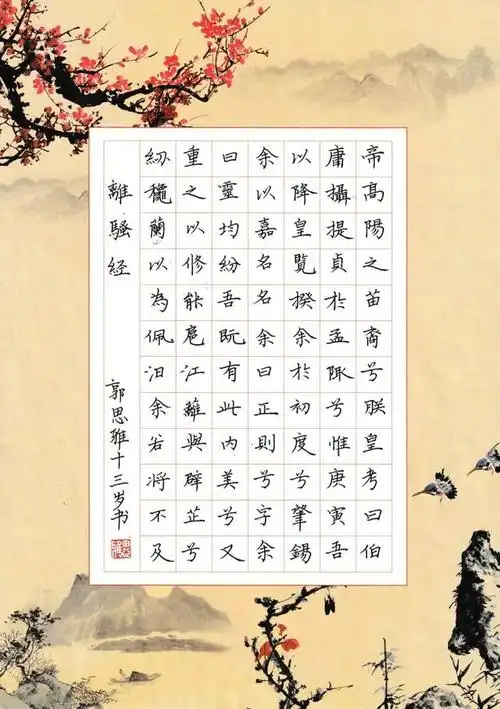 帝高陽之苗裔兮朕皇考曰伯
庸攝提貞於孟陬兮惟庚寅吾
以降皇覽揆余於初度兮肇錫
余以嘉名名余曰正則兮字余
曰靈均紛吾既有此內美兮又
重之以修能扈江離與辟芷兮
紉秋蘭以為佩汨余若將不及
離騷经
郭思雅十三岁书
思雅